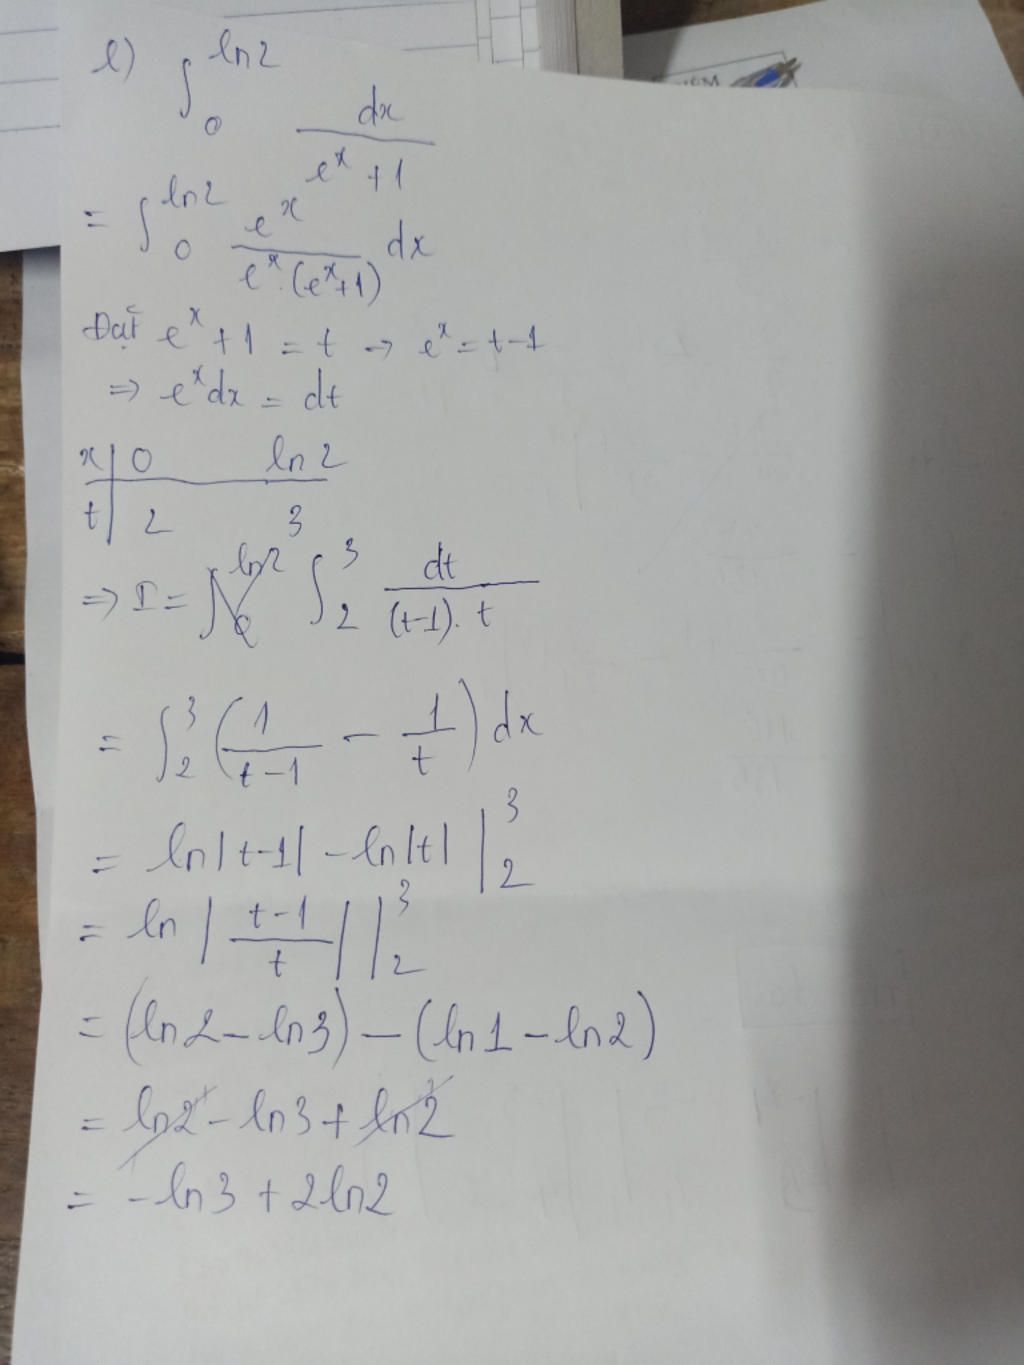 l) ∫₀^{ln2} dx / (eˣ + 1)
= ∫₀^{ln2} eˣ / (eˣ.(eˣ+1)) dx
Đặt eˣ + 1 = t → eˣ = t-1
⇒ eˣdx = dt
x | 0 ln2
t | 2 3
⇒ I = ∫₂³ dt / ((t-1). t)
= ∫₂³ (1/(t-1) - 1/t) dx
= ln|t-1| - ln|t| |₂³
= ln |(t-1)/t| |₂³
= (ln2 - ln3) - (ln1 - ln2)
= ln2 - ln3 + ln2
= -ln3 + 2ln2